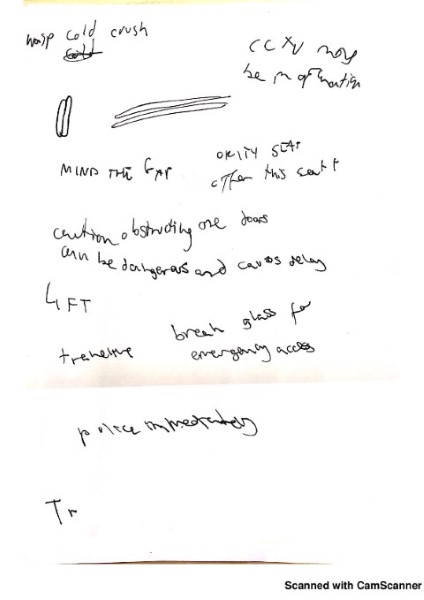 cold crush
CCTV may
be in operation
MIND THE GAP
ORITY SEAT
offer this seat
caution obstructing the doors
can be dangerous and causes delay
LIFT
break glass for
emergency access
police immediately
Tr
Scanned with CamScanner